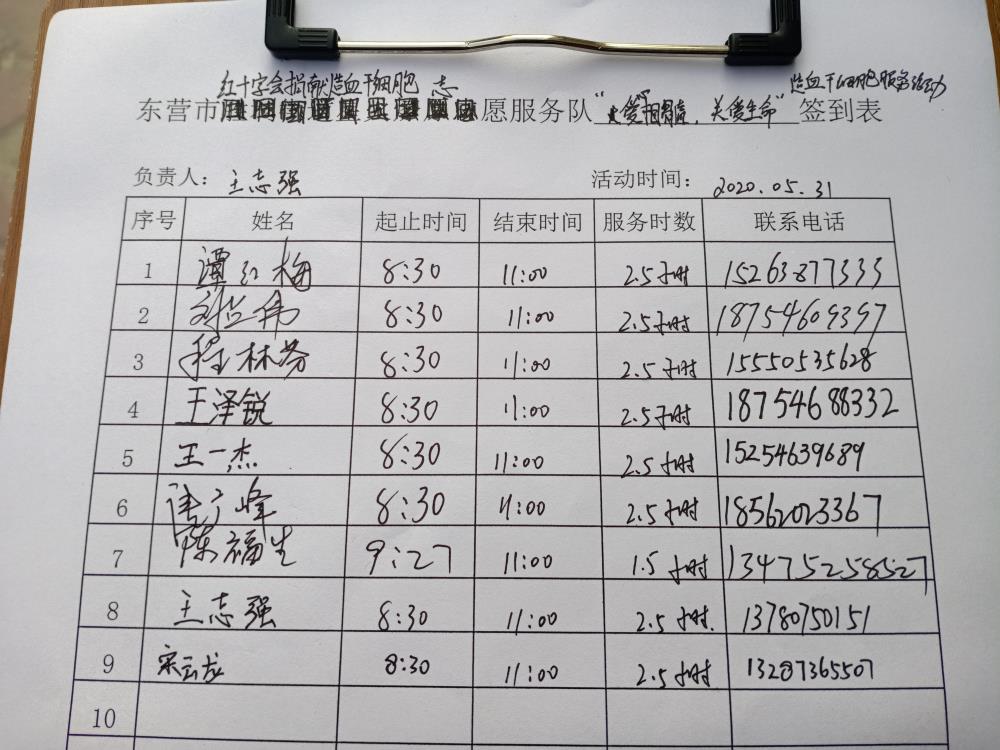 红十字会捐献造血干细胞 志 造血干细胞服务活动
东营市愿服务队"爱相髓，关爱生命"签到表
负责人：王志强 活动时间：2020.05.31
序号 姓名 起止时间 结束时间 服务时数 联系电话
1 谭红梅 8:30 11:00 2.5小时 15263877333
2 刘兰伟 8:30 11:00 2.5小时 18754609397
3 程林芬 8:30 11:00 2.5小时 15550535628
4 王泽锐 8:30 11:00 2.5小时 18754688332
5 王一杰 8:30 11:00 2.5小时 15254639689
6 唐广峰 8:30 11:00 2.5小时 18562023367
7 陈福生 9:27 11:00 1.5小时 13475258527
8 王志强 8:30 11:00 2.5小时. 13780750151
9 宋云龙 8:30 11:00 2.5小时 13287365507
10